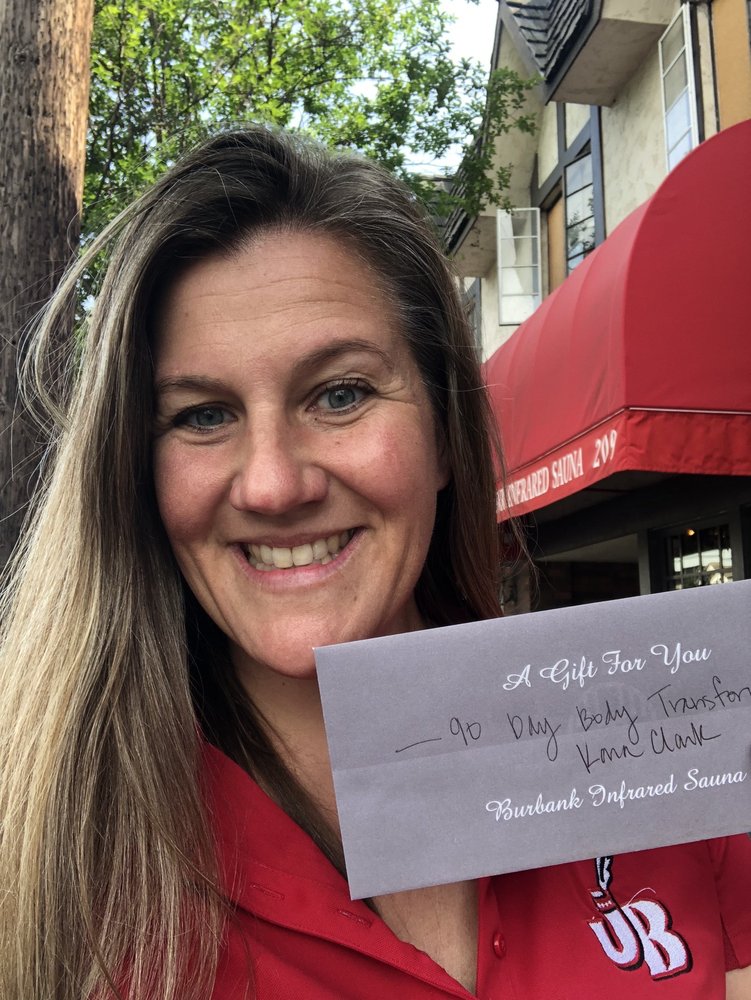 INFRARED SAUNA 209
A Gift For You
— 90 Day Body Transfor
Kara Clark
Burbank Infrared Sauna
UB